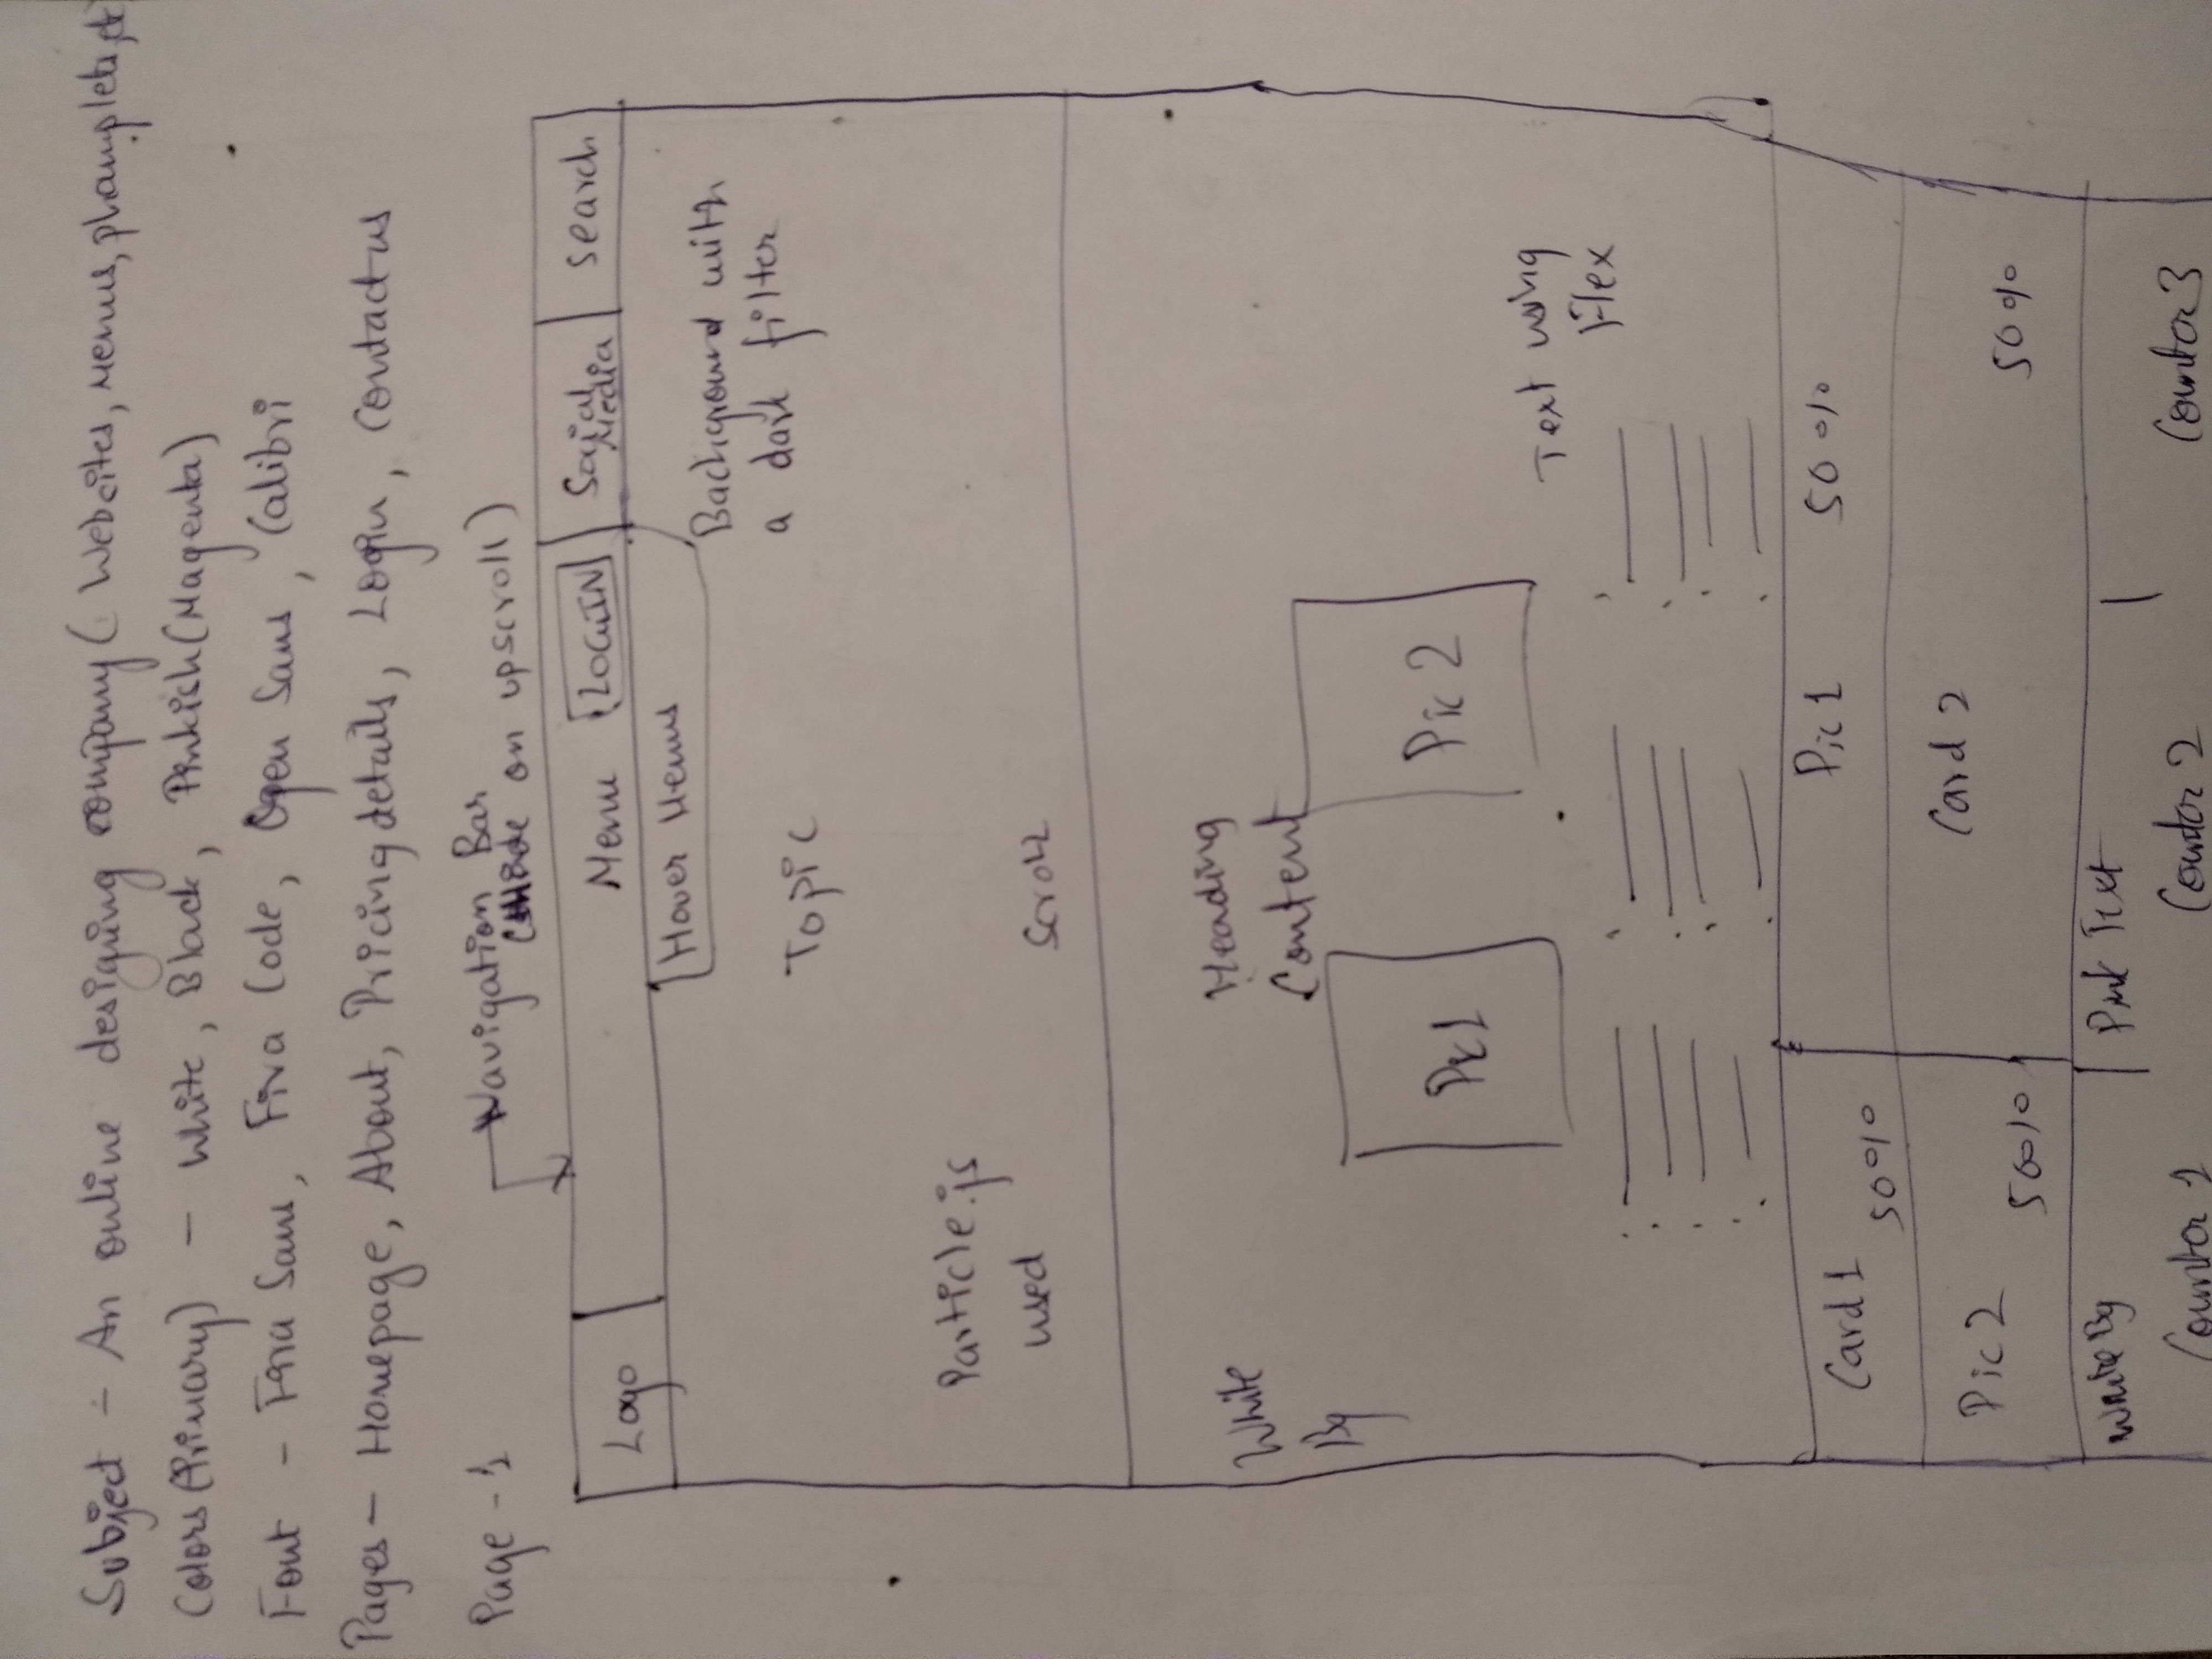 Subject - An online designing company ( Websites, Menus, phamplets, etc
Colors (Primary) - White, Black, Pinkish (Magenta)
Font - Fira Sans, Fira Code, Open Sans, Calibri
Pages - Homepage, About, Pricing details, Login, Contact us
Page - 1
Navigation Bar
(Hide on upscroll)
Logo
Menu
LOGIN
Social Media
Search
Hover Menus
Background with
a dark filter
Topic
Particle.js
used
Scroll
White
Bg
Heading
Content
Pic 1
Pic 2
Text using
Flex
Card 1
50%
Pic 1
50%
Pic 2
50%
Card 2
50%
White Bg
Pink Text
Counter 1
Counter 2
Counter 3